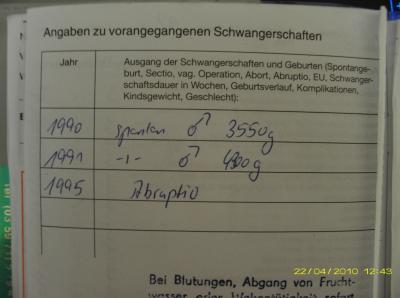 Angaben zu vorangegangenen Schwangerschaften
Jahr
Ausgang der Schwangerschaften und Geburten (Spontange-
burt, Sectio, vag. Operation, Abort, Abruptio, EU, Schwanger-
schaftsdauer in Wochen, Geburtsverlauf, Komplikationen,
Kindsgewicht, Geschlecht):
1990 spontan ♂ 3550g
1991 -"- ♂ 4300g
1995 Abruptio
Bei Blutungen, Abgang von Frucht-
wasser oder Wehentätigkeit sofort
22/04/2010 12:43